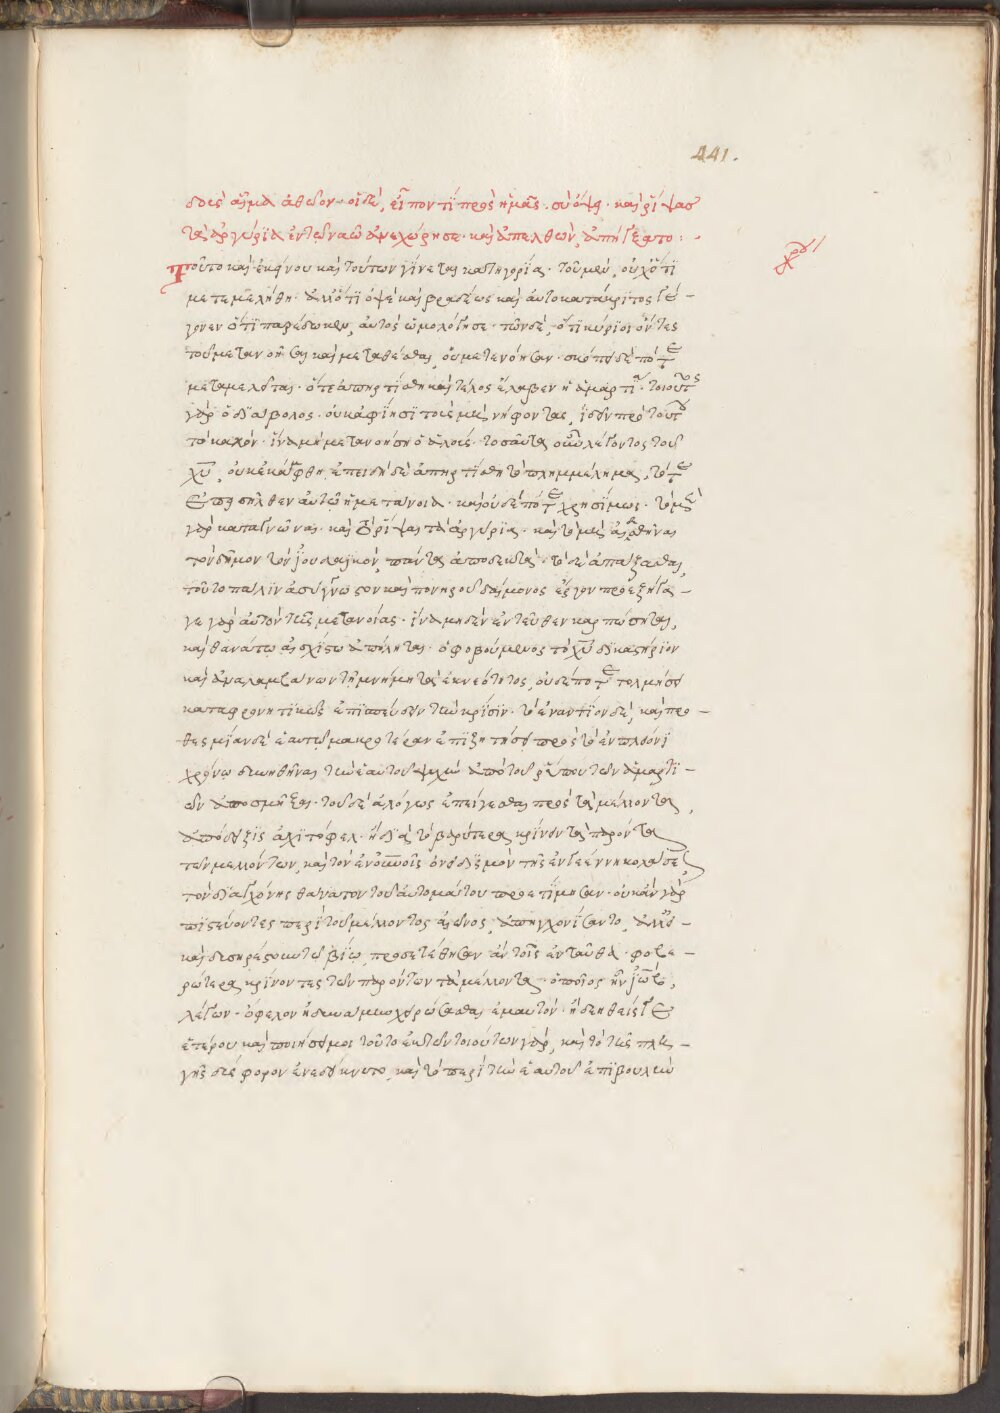 441.
δοὺς αἷμα ἀθῶον· οἱ δὲ, εἶπον τί πρὸς ἡμᾶς. σὺ ὄψει· καὶ ῥίψας
τὰ ἀργύρϊα ἐν τῶ ναῶ ἀνεχώρησε· καὶ ἀπελθὼν, ἀπήγξατο:
Τοῦτο καὶ ἐκείνου καὶ τούτων γίνεται κατηγορία· τοῦ μὲν, οὐχ ὅτϊ
μετεμελήθη· ἀλλ' ὅτϊ ὀψὲ καὶ βραδέως καὶ αὐτοκατάκριτος γέ-
γονεν ὅτϊ παρέδωκεν, αὐτὸς ὡμολόγησε· τῶν δὲ, ὅτϊ κύριοι ὄντες
τοῦ μετανοῆσαι καὶ μεταθέσθαι, οὐ μετενόησαν· σκόπει δὲ πότε
μεταμελεῖται· ὅτε ἀπηρτίσθη καὶ τέλος ἔλαβεν ἡ ἁμαρτία· τοιοῦτος
γὰρ ὁ διάβολος· οὐκ ἀφίησϊ τοὺς μὴ νήφοντας, ἰδεῖν πρὸ τούτου
τὸ κακόν· ἵνα μὴ μετανοήση ὁ ἁλούς· τοσαῦτα οὖν λέγοντος τοῦ
χυ, οὐκ ἐκάμφθη, ἐπειδὴ δὲ ἀπηρτίσθη τὸ πλημμέλημα, τότε
ἐπεισῆλθεν αὐτῶ ἡ μετάνοια· καὶ οὐδὲ πότε χρησίμως· τὸ μὲν
γὰρ καταγνῶναι· καὶ τὸ ῥίψαι τὰ ἀργύρϊα· καὶ τὸ μὴ αἰδεσθῆναι
τὸν δῆμον τὸν ἰουδαϊκὸν, πάντα ἀποδεκτά· τὸ δὲ ἀπάγξασθαι,
τοῦτο πάλϊν ἀσύγνωστον καὶ πονηροῦ δαίμονος ἔργον προεξήγα-
γε γὰρ αὐτὸν τῆς μετανοίας· ἵνα μηδὲν ἐντεῦθεν καρπώσηται,
καὶ θανάτω αἰσχίστω ἀπόληται· ὁ φοβούμενος τὸ χυ δικαστήριον
καὶ ἀναλαμβάνων τῆ μνήμη τὰ ἐκ νεότητος, οὐδέποτε τολμήσει
καταφρονητϊκῶς ἐπισπεύδειν τὴν κρίσϊν· τὸ ἐναντίον δὲ, καὶ προ-
θεσμίαν δὲ ἑαυτῶ μακροτέραν ἐπιζητήσει πρὸς τὸ ἐν πλείονϊ
χρόνω δυνηθῆναι τὴν ἑαυτοῦ ψυχὴν ἀπὸ τοῦ ῥύπου τῶν ἁμαρτϊ-
ῶν ἀποσμῆξαι· τοῦ δὲ ἀλόγως ἐπείγεσθαι πρὸς τὰ μέλλοντα,
ἀπόδειξις ἀχϊτόφελ· ἢ διὰ τὸ βαρύτερα κρίνειν τὰ παρόντα
τῶν μελλόντων, καὶ τὸν ἐν ἀνοις ὀνειδισμὸν τῆς ἐν γεέννη κολάσεως,
τὸν δι' ἀγχόνης θάνατον τοῦ αὐτομάτου προετίμησαν· οὐκ ἂν γὰρ
πϊστεύοντες περὶ τοῦ μέλλοντος αἰῶνος, ἀπηγχονίσαντο, ἀλλ' εἰ-
καὶ δυσηρέστουν τῶ βίω, προσετέθησαν ἂν τοῖς ἐνταῦθα· φοβε-
ρώτερα κρίνοντες τῶν παρόντων τὰ μέλλοντα· ὁποῖος ἦν ἰὼβ,
λέγων· ὄφελον ἠδυνάμην χειρώσασθαι ἐμαυτόν· ἢ δεηθεὶς γε
ἑτέρου καὶ ποιήσει μοι τοῦτο ἐκ τῶν τοιούτων γὰρ, καὶ τὸ τῆς πλη-
γῆς δύσφορον ἐνεδείκνυτο, καὶ τὸ περὶ τὴν ἑαυτοῦ ἐπιβουλὴν